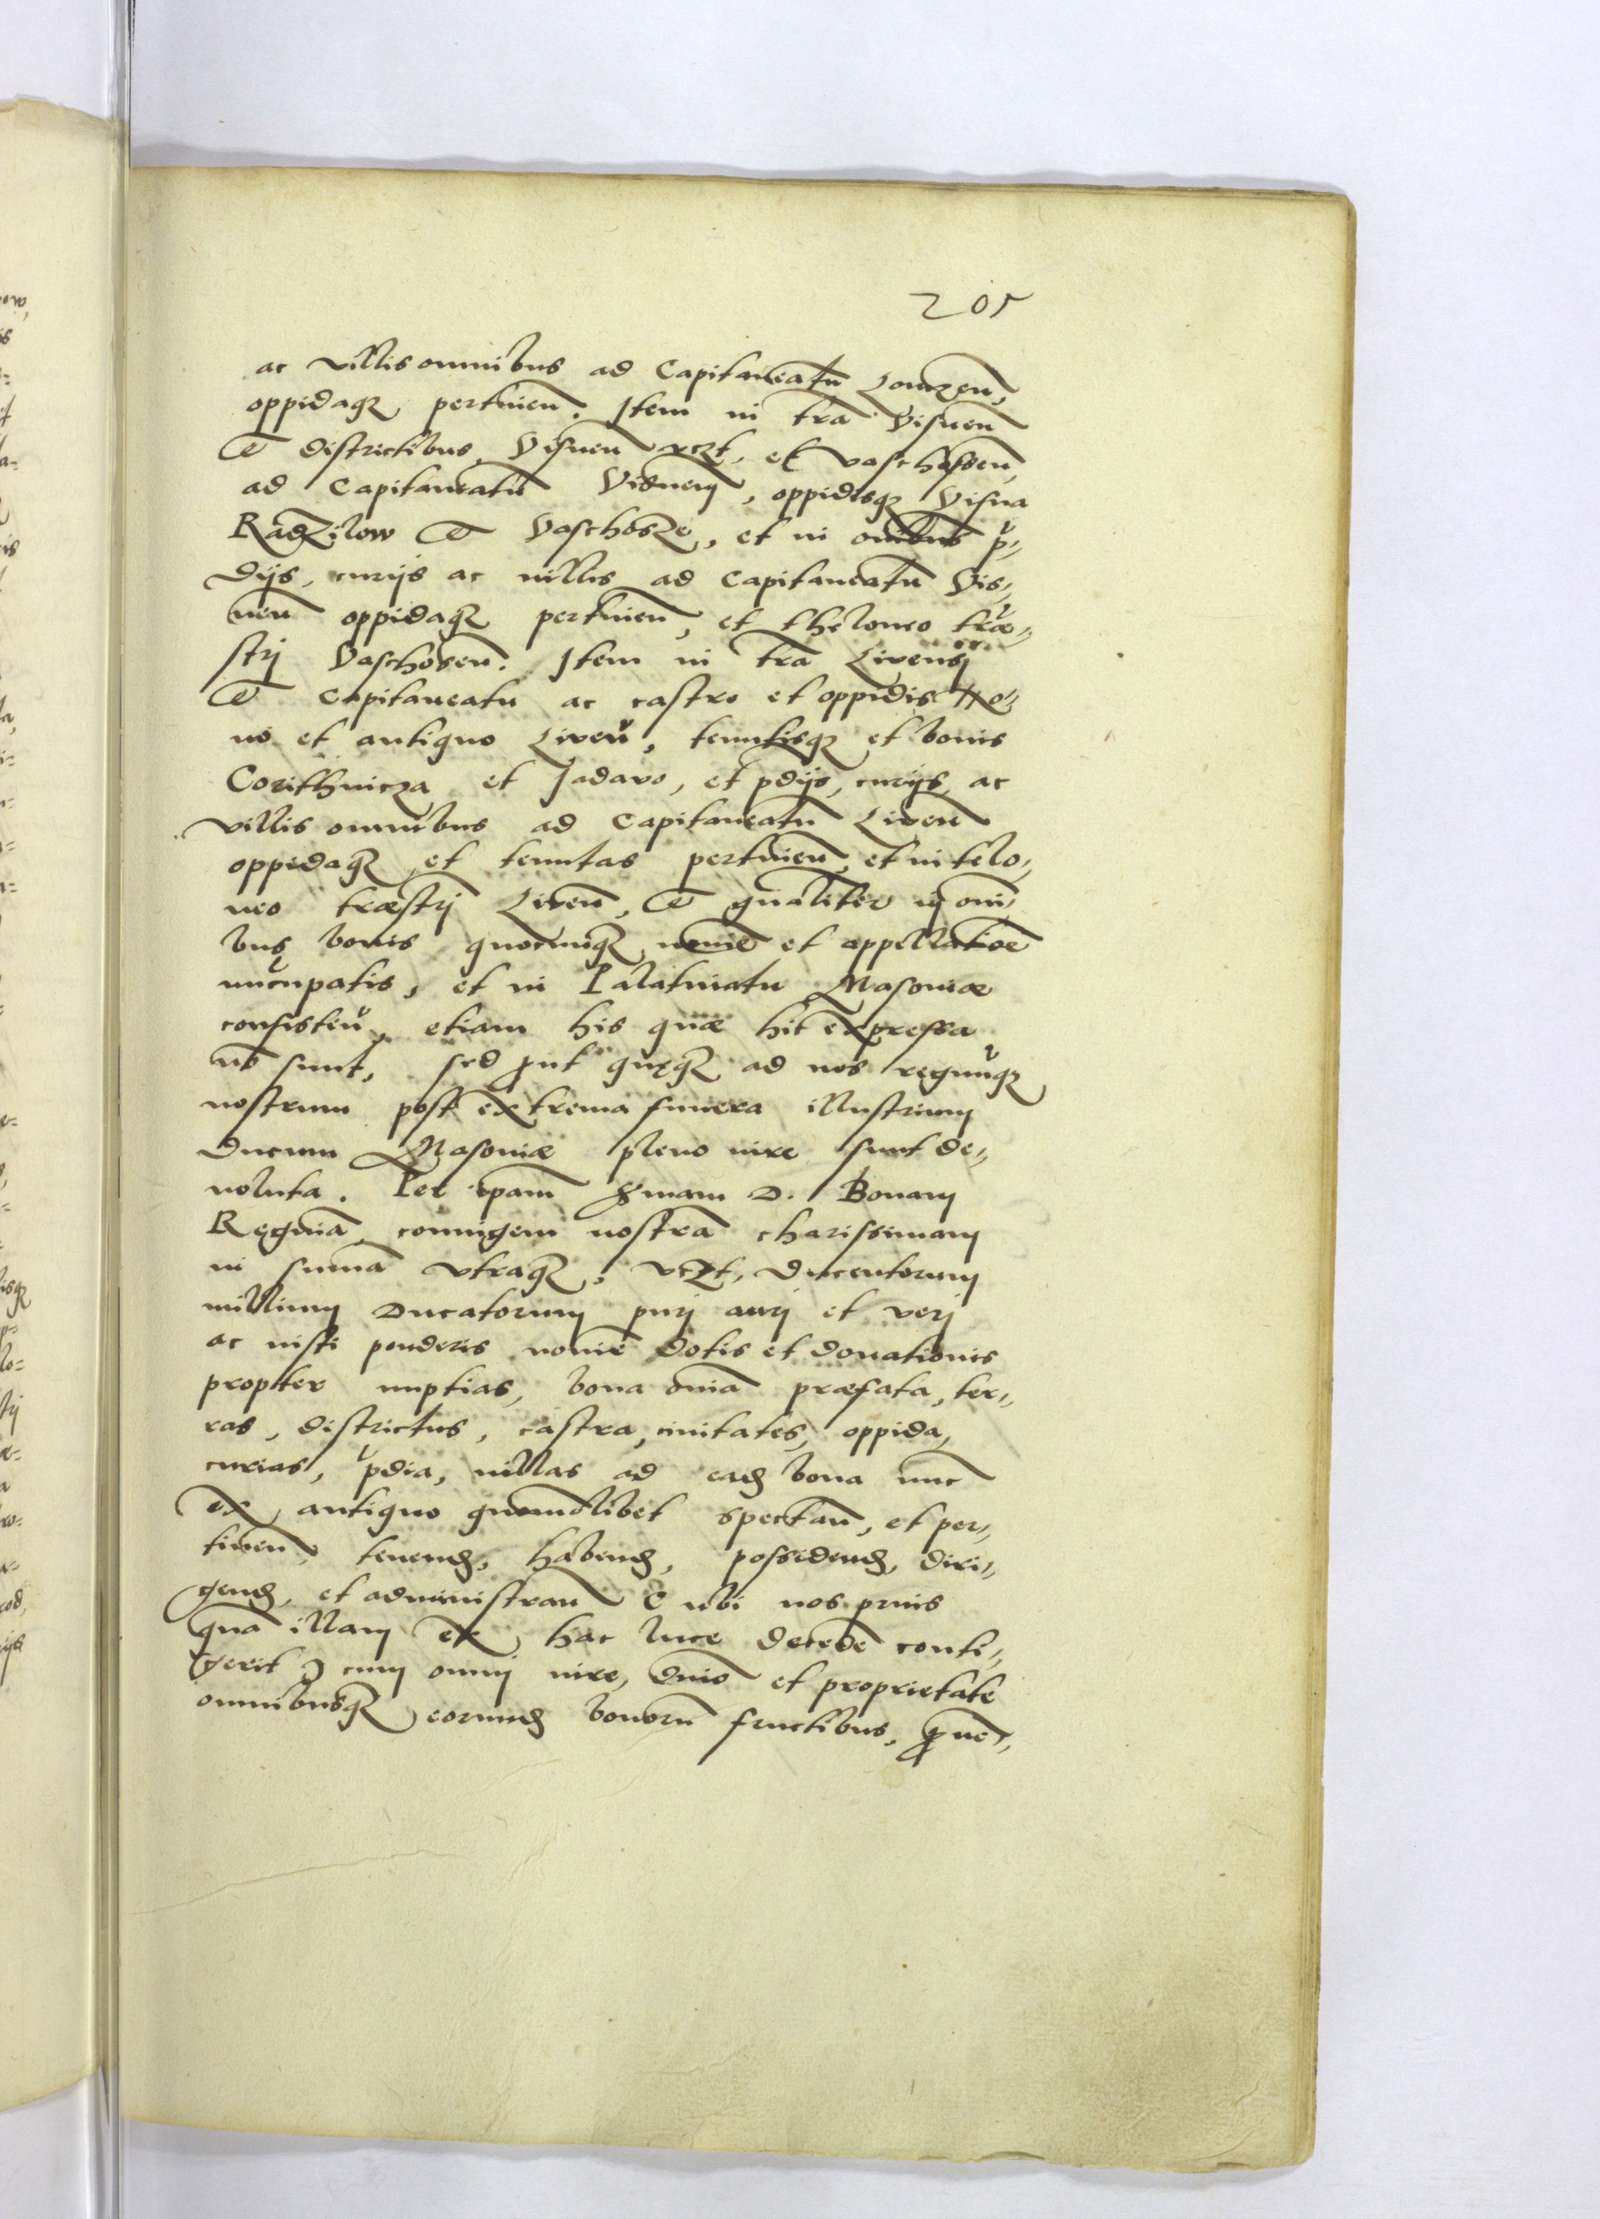 205
ac villis omnibus ad Capitaneatū Lomzen̄,
oppidaqȝ pertinen̄. Item in trā Visnen̄
& districtibus, Visnen̄ vczt, et vaschosen̄,
ad Capitaneatū Visnen̄, oppidisqȝ Visna
Radzilow & Vaschosze, et in om̄ibus p̄-
dijs, curijs ac villis ad Capitaneatū Vis-
nen̄ oppidaqȝ pertinen̄, et theloneo træ-
strj Vaschosen̄. Item in trā Livensj
& Capitaneatu ac castro et oppidis No-
uo et antiquo Liven̄, tenutisqȝ et bonis
Corithnicza et Jadavo, et p̄dijs, curijs, ac
villis omnibus ad Capitaneatū Liven̄
oppidaqȝ et tenutas pertinen̄, et in telo-
neo træstrj Liven̄, & qualiter in omi-
bus bonis quocunqȝ nomīe et appellatiōe
nūcupatis, et in Palatinatu Masoniæ
consisten̄, etiam his quæ hic expressa
nō sunt, sed put quęqȝ ad nos regnūqȝ
nostrum post extrema funera illustrium
Ducum Masoniæ pleno iure sunt de-
uoluta. Per ipam D. Bonam
Reginā coniugem nostrā charissimam
in sumā vtraqȝ, vczt, Ducentorum
millium Ducatorum purj aurj et verj
ac iusti ponderis nomīe dotis et donationis
propter nuptias, bona om̄ia præfata, ter-
ras, districtus, castra, ciuitates, oppida,
curias, p̄dia, villas ad eadē bona nunc
ex antiquo quomōlibet spectan̄, et per-
tinen̄, tenend, habend, possidend, diri-
gend, et administran̄ ( ubi nos prius
quā illam ex hac luce decedē conti-
gerit ) cum omnj iure, dn̄io et proprietate
omnibusqȝ eorund bonorū fructibus, proue-